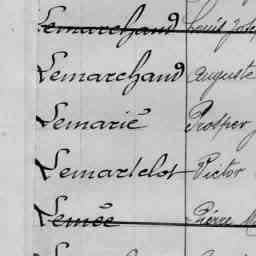 Lemarchand Louis Jose
Lemarchand Auguste
Lemarié Prosper
Lemartelot Victor
Lemée Pierre M